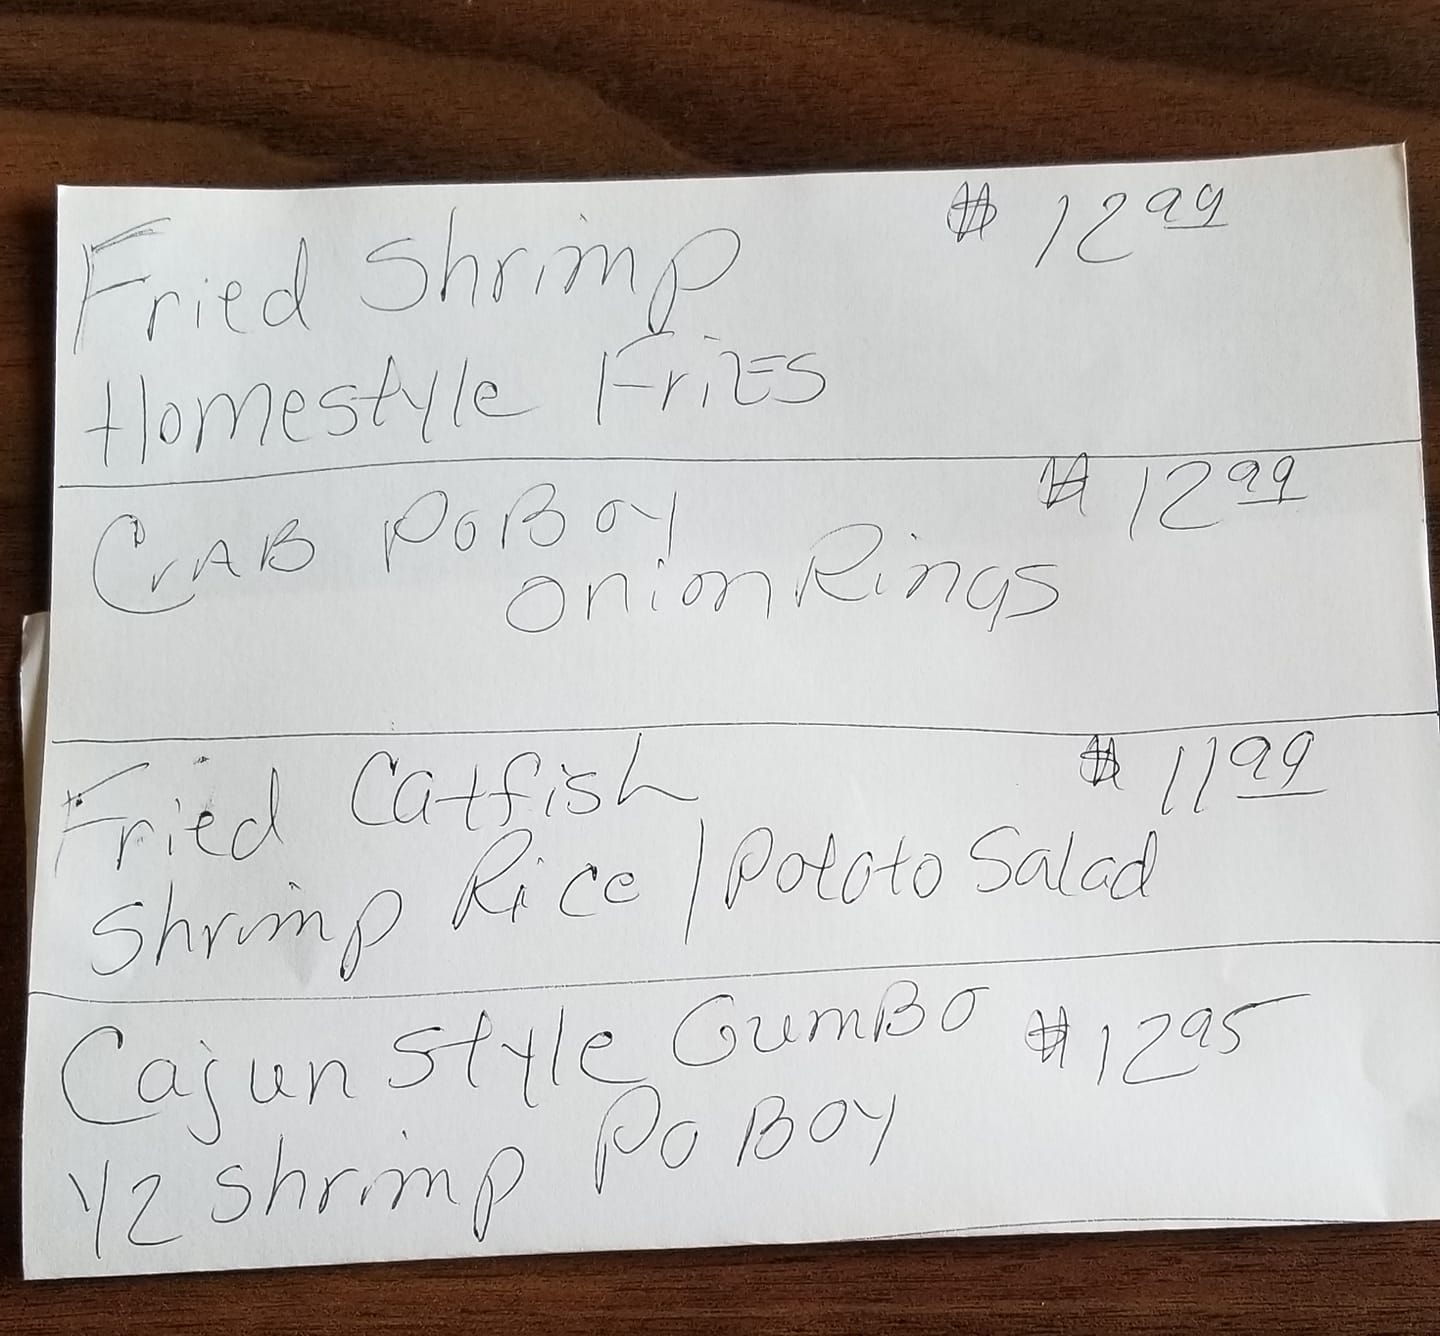 Fried Shrimp $12 99
Homestyle Fries
CrAB PoBoy $12 99
Onion Rings
Fried Catfish $11 99
Shrimp Rice / Pototo Salad
Cajun Style GumBo $12 95
1/2 Shrimp Po BOY